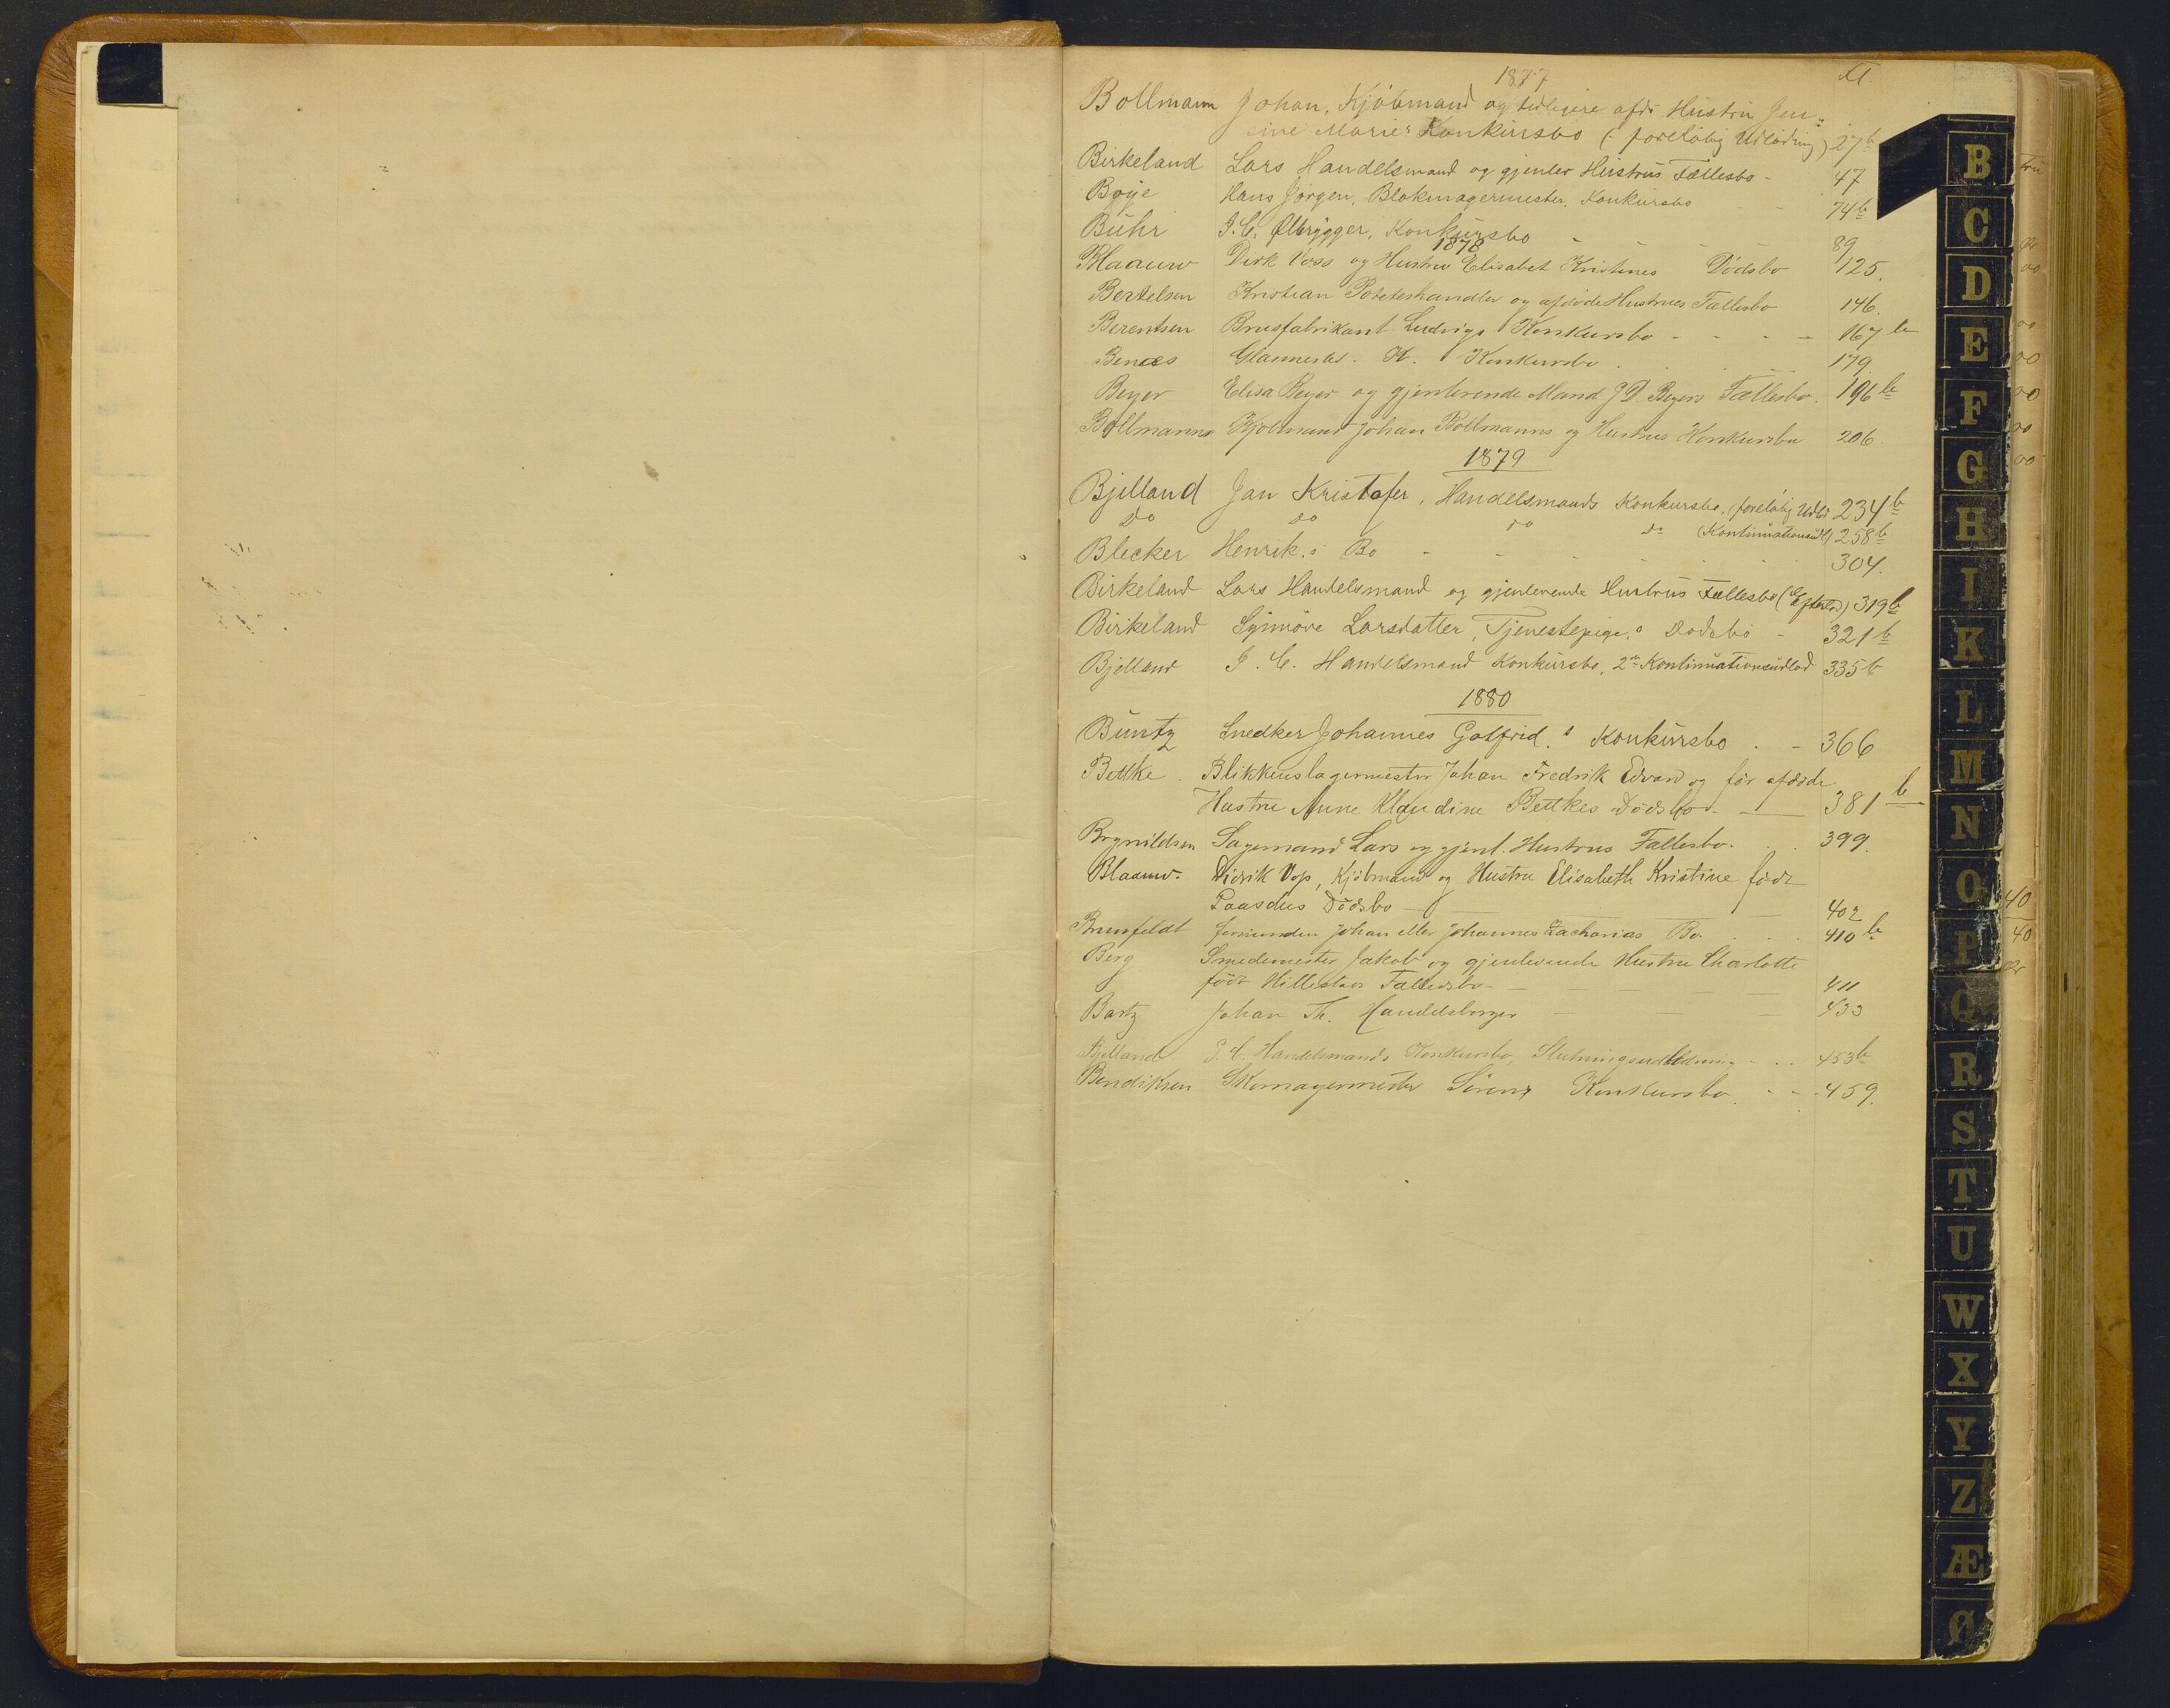 1877
Bollmann Johan, Kjöbmand og tidligere afd: Hustru Jen-
sine Maries Konkursbo (foreløbig Udlodning) 27b
Birkeland Lars Handelsmand og gjenlev Hustrus Fællesbo - 47
Boye Hans Jörgen, Blokmagermester, Konkursbo - - 74b
Buhr J. C. Ølbrygger, Konkursbo - - - - 89
1878
Blaauw Dirk Voss og Hustru Elisabet Kristines Dödsbo 125.
Bertelsen Kristian Poteteshandler og afdöde Hustrues Fællesbo 146.
Berentsen Brusfabrikant Ludvigs Konkursbo - - - - 167b
Benæs Glasmester. K. Konkursbo . . . . 179.
Beyer Elisa Beyer og gjenlevende Mand J D. Beyers Fællesbo. 196b
Bollmanns Kjöbmand Johan Bollmanns og Hustrus Konkursbo 206.
1879
Bjelland Jan Kristofer, Handelsmands Konkursbo, (foreløbig Udlod 234b
Do do do do (Kontinuationsudl) 258b
Blecker Henrik.s Bo - - - - 304.
Birkeland Lars Handelsmand og gjenlevende Hustrus Fællesbo (Efterlod) 319b
Birkeland Synnöve Larsdatter, Tjenestepige.s Dödsbo - 321b
Bjelland J. C. Handelsmand Konkursbo, 2n Kontinuationsudlod 335b
1880
Buntz Snedker Johannes Gotfrid.s Konkursbo . - 366
Bettke . Blikkenslagermester Johan Fredrik Edvard og för afdöde
Hustru Anne Klaudine Bettkes Dödsbo - 381b
Brynildsen Sagmand Lars og gjenl. Hustrus Fællesbo. . . 399.
Blaauw. Didrik Vos, Kjöbmand og Hustru Elisabeth Kristine födt
Paasches Dödsbo - 402
Brunfeldt forsvunden Johan eller Johannes Zacharias Bo. . . . 410b
Berg Smedemester Jakob og gjenlevende Hustru Charlotte
födt Hillestads Fællesbo - - - - 411
Bartz Johan Th. Handelsborger - - - 433
Bjelland J. C. Handelsmands Konkursbo, Slutningsudlodning - . . 453b
Bendiksen Skomagermester Sörens Konkursbo. - - . 459.
B
C
D
E
F
G
H
I
K
L
M
N
O
P
Q
R
S
T
U
W
X
Y
Z
Æ
Ø